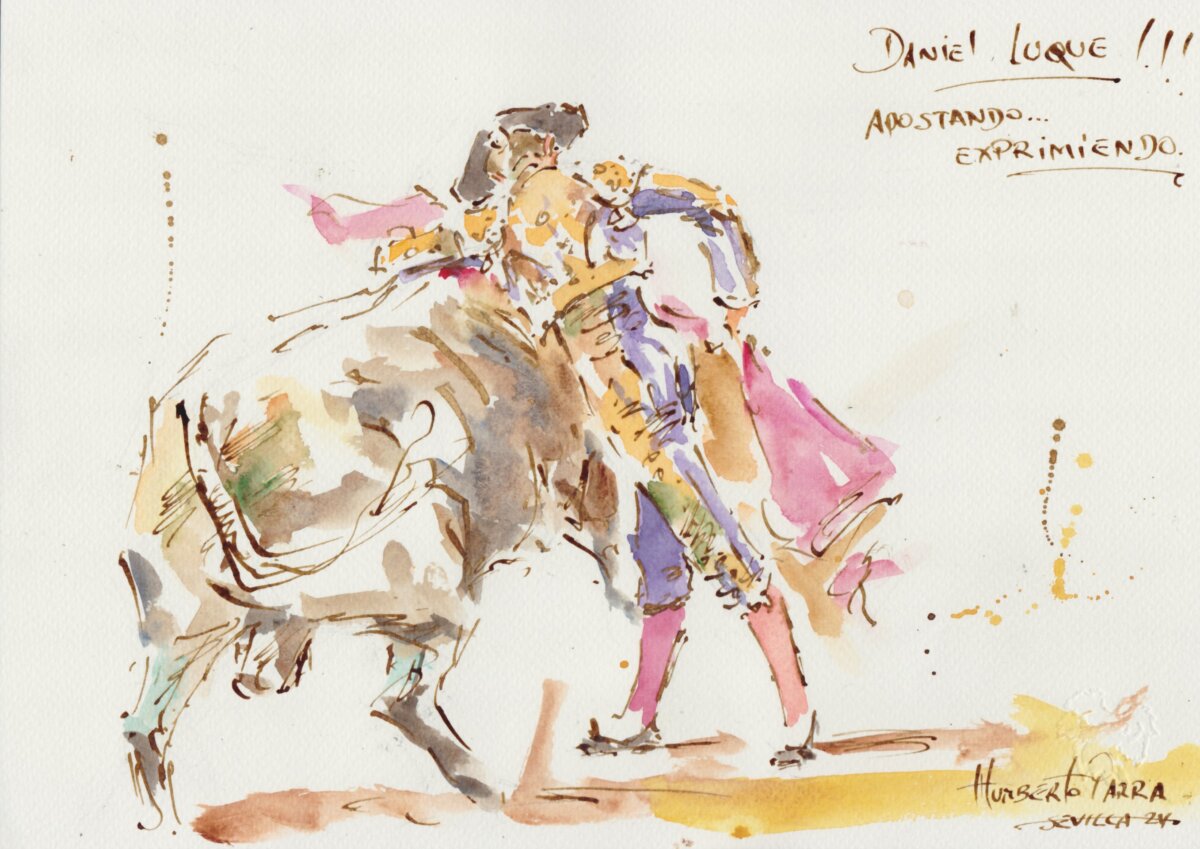 DANIEL LUQUE !!!
APOSTANDO...
EXPRIMIENDO.
HUMBERTO PARRA
SEVILLA 24.